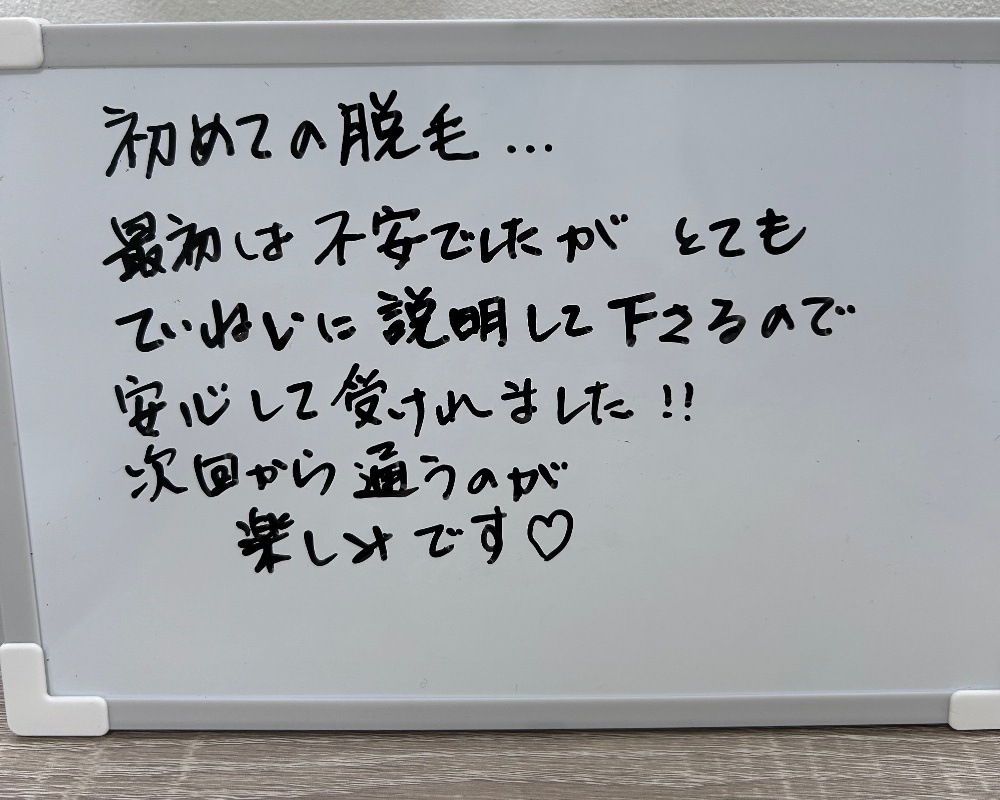 初めての脱毛...
最初は不安でしたが とても
ていねいに説明して下さるので
安心して受けれました!!
次回から通うのが
楽しみです♡